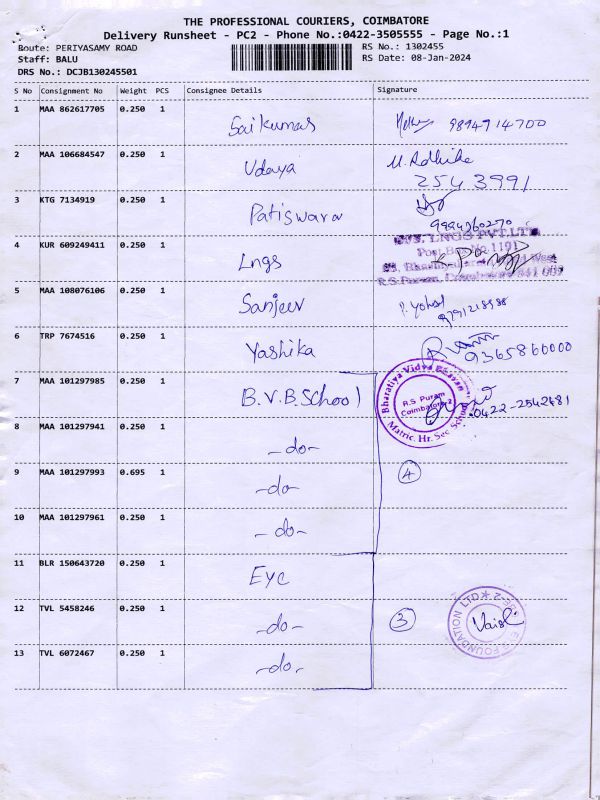 THE PROFESSIONAL COURIERS, COIMBATORE
Delivery Runsheet - PC2 - Phone No.:0422-3505555 - Page No.:1
Route: PERIYASAMY ROAD RS No.: 1302455
Staff: BALU RS Date: 08-Jan-2024
DRS No.: DCJB130245501
S No Consignment No Weight PCS Consignee Details Signature
1 MAA 862617705 0.250 1 Saikumar 9894914700
2 MAA 106684547 0.250 1 Udaya M. Radhika
2543991
3 KTG 7134919 0.250 1 Patiswara
9994360270
4 KUR 609249411 0.250 1 Lngs LNGS PVT. LTD.
Post Box No 1191
R.S Puram, Coimbatore 641 002
5 MAA 108076106 0.250 1 Sanjeev
9791218598
6 TRP 7674516 0.250 1 Yashika
9365860000
7 MAA 101297985 0.250 1 B.V.B School Bharatiya Vidya Bhavan
R.S. Puram
Coimbatore-2
Matric. Hr. Sec School
0422-2542481
8 MAA 101297941 0.250 1 -do-
9 MAA 101297993 0.695 1 -do- 4
10 MAA 101297961 0.250 1 -do-
11 BLR 150643720 0.250 1 EYE
12 TVL 5458246 0.250 1 -do- 3 FOUNDATION LTD
13 TVL 6072467 0.250 1 -do-